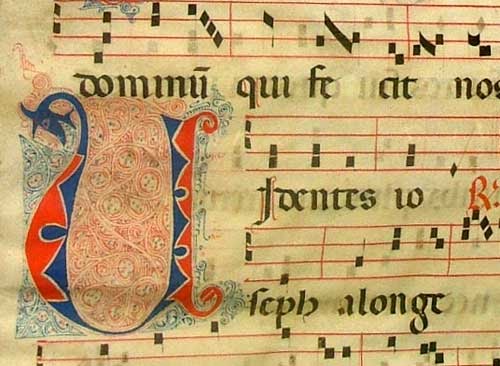 dominū qui fe cit nos
Videntes io R
seph alonge